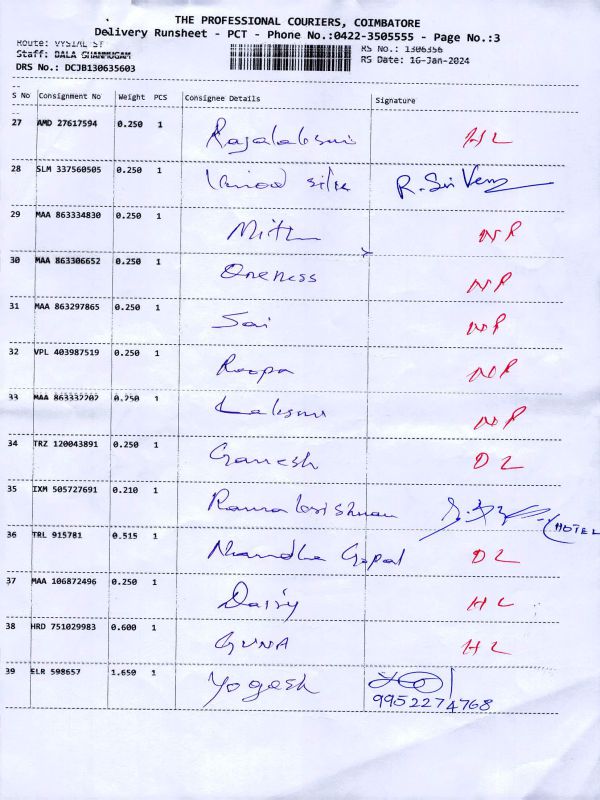 THE PROFESSIONAL COURIERS, COIMBATORE
Delivery Runsheet - PCT - Phone No.:0422-3505555 - Page No.:3
Route: VYSIAL ST
RS No.: 1306356
Staff: BALA SHANMUGAM
RS Date: 16-Jan-2024
DRS No.: DCJB130635603
S No Consignment No Weight PCS Consignee Details Signature
27 AMD 27617594 0.250 1 Rajalaksmi HL
28 SLM 337560505 0.250 1 Vinod silks R. Sri Veni
29 MAA 863334830 0.250 1 Mith NP
30 MAA 863306652 0.250 1 Oneness NP
31 MAA 863297865 0.250 1 Sai NP
32 VPL 403987519 0.250 1 Roopa NP
33 MAA 863332202 0.250 1 Laksmi NP
34 TRZ 120043891 0.250 1 Ganesh DL
35 IXM 505727691 0.210 1 Ramakrishnan (HOTEL
36 TRL 915781 0.515 1 Nandha Gopal DL
37 MAA 106872496 0.250 1 Daisy HL
38 HRD 751029983 0.600 1 GUNA HL
39 ELR 598657 1.650 1 Yogesh
9952274768